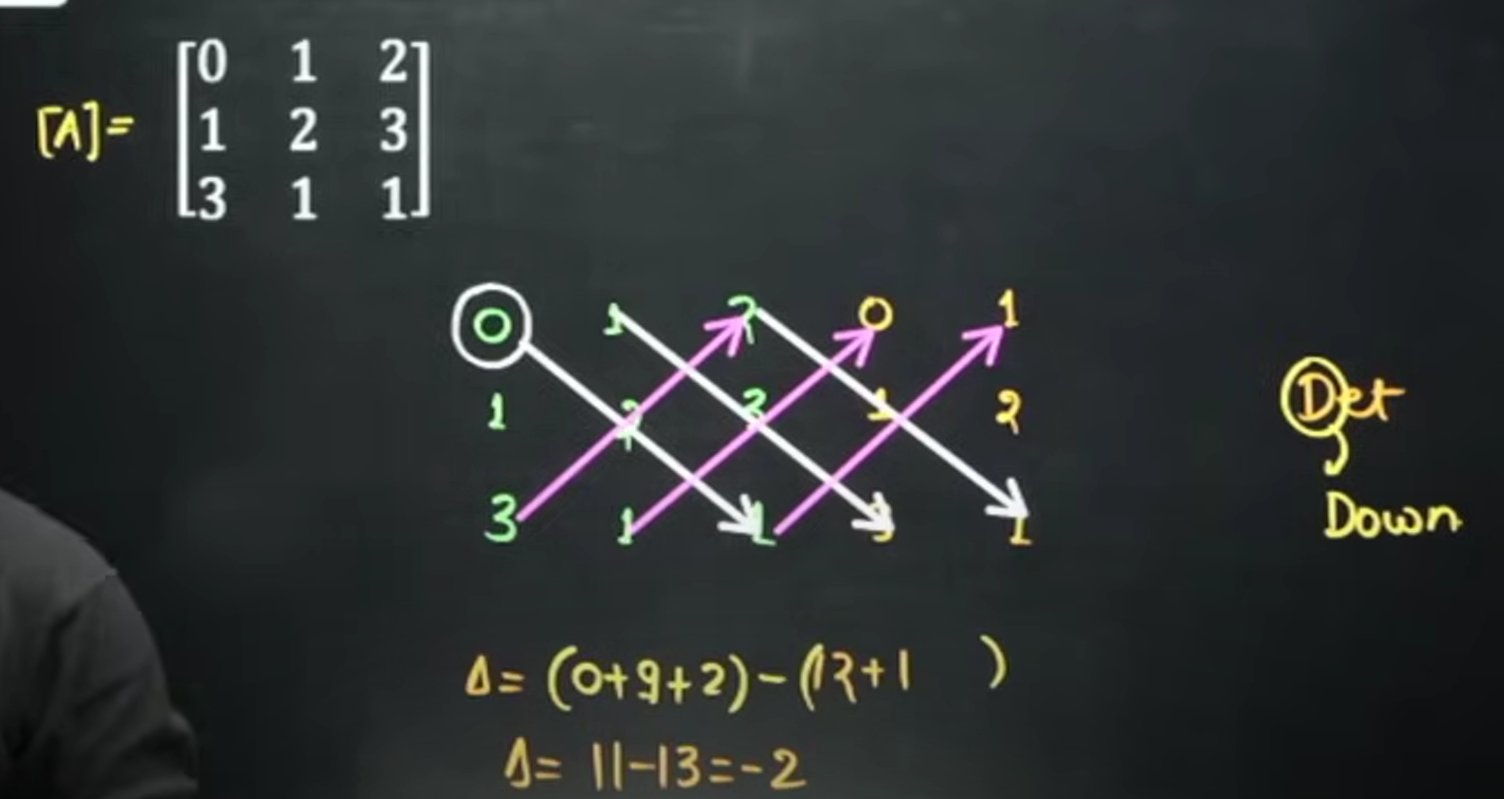 [A]= [0 1 2
1 2 3
3 1 1]
0 1 2 0 1
1 2 3 1 2
3 1 1 3 1
Det
Down
Δ= (0+9+2)-(12+1 )
Δ= 11-13=-2